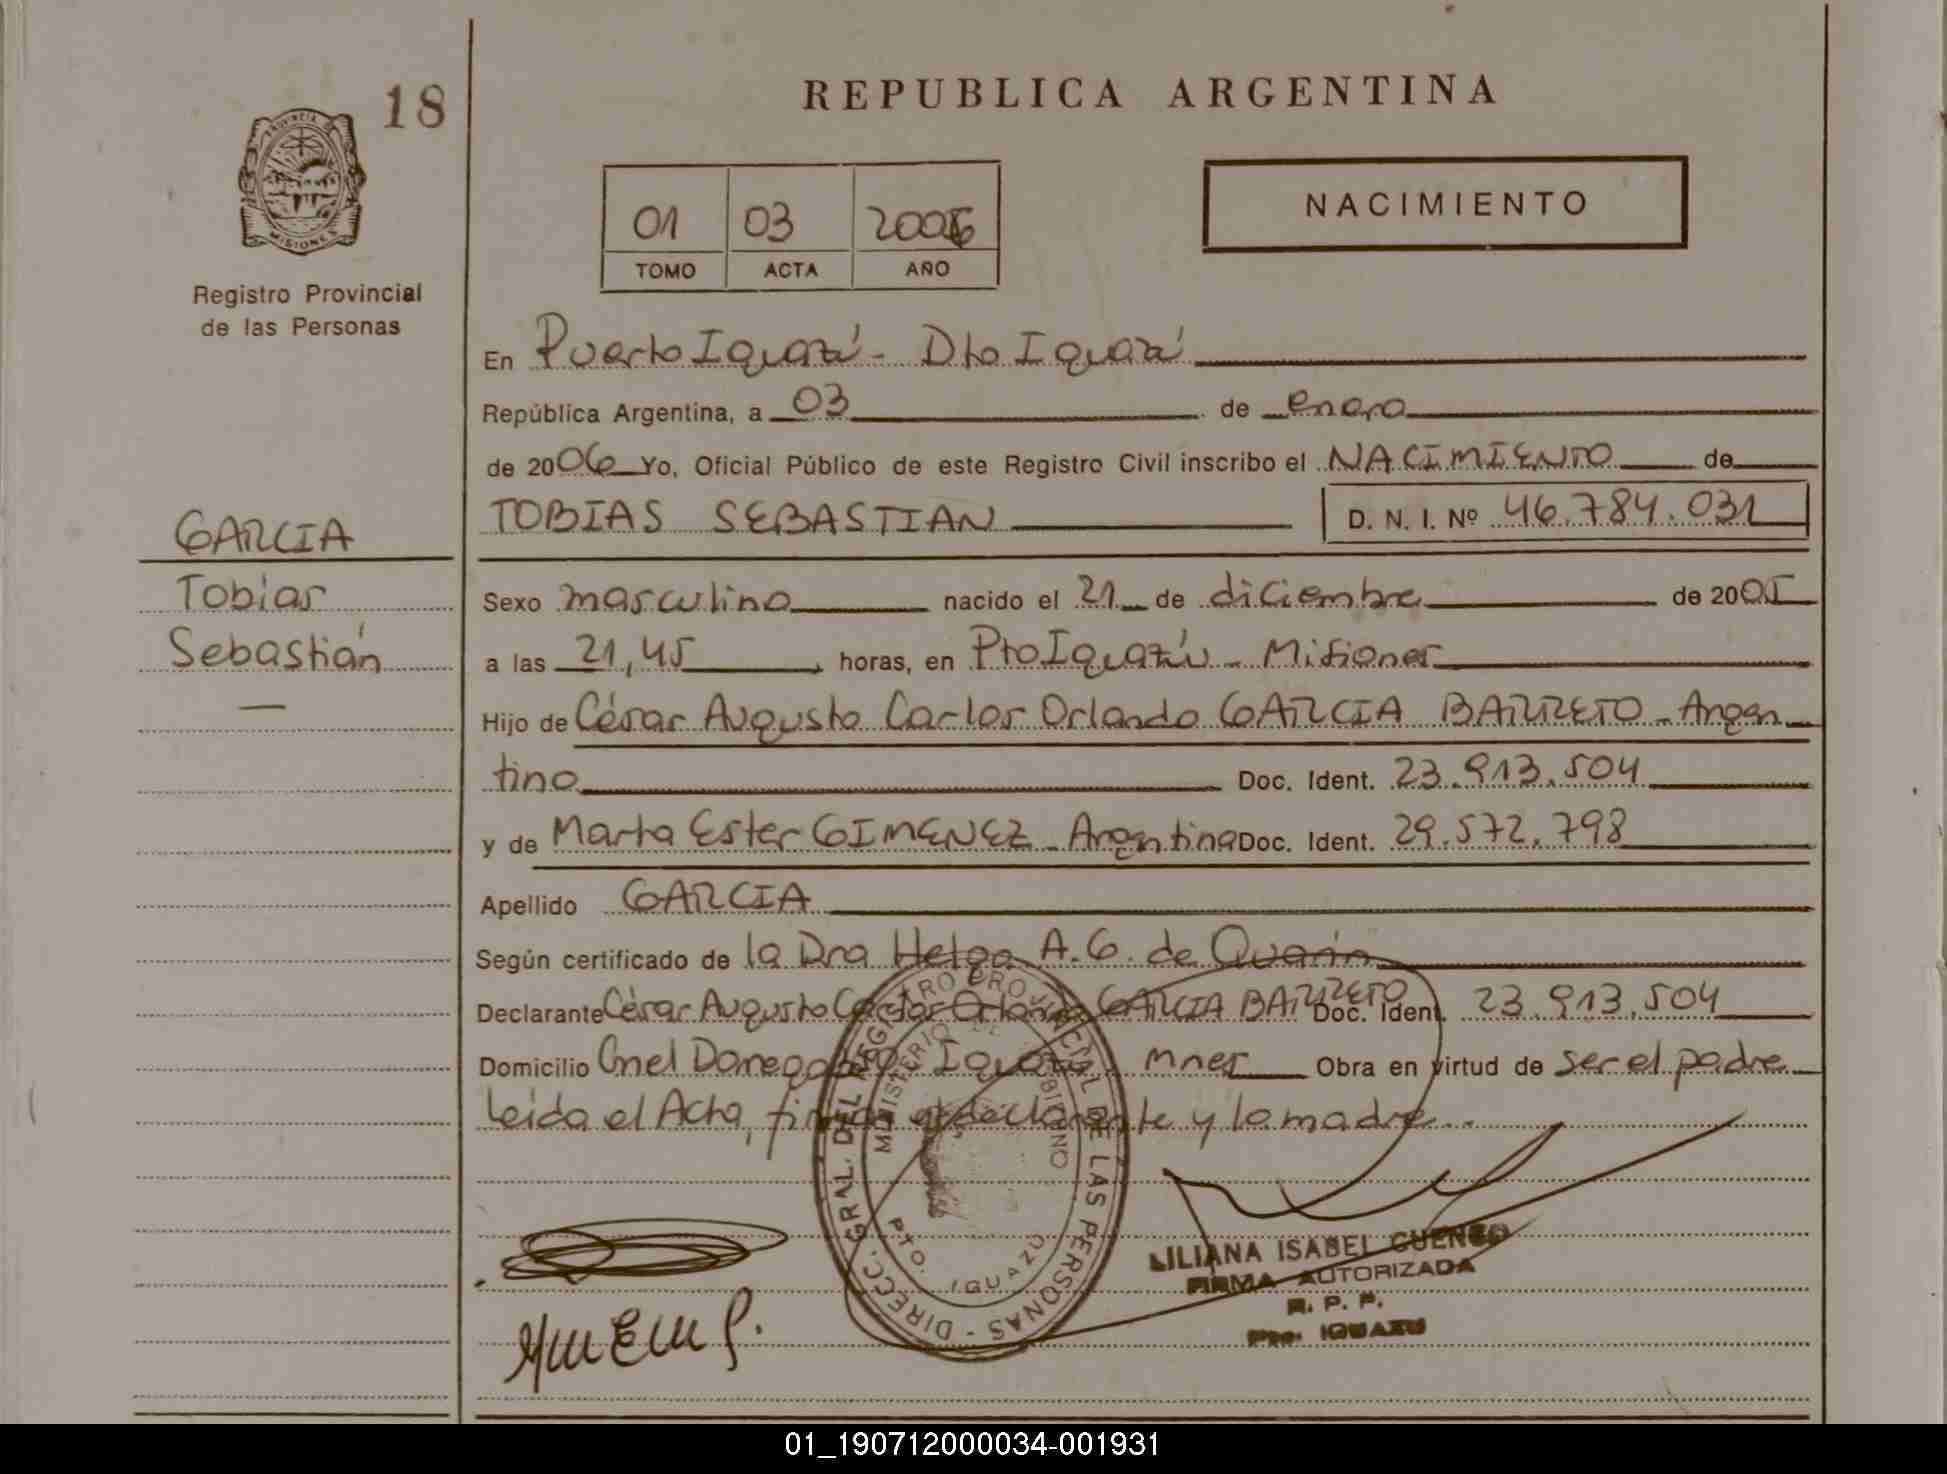 18
REPUBLICA ARGENTINA
PROVINCIA DE
MISIONES
Registro Provincial
de las Personas
01 03 2006
TOMO ACTA AÑO
NACIMIENTO
En Puerto Iguazú - Dto Iguazú
República Argentina, a 03 de enero
de 2006 Yo, Oficial Público de este Registro Civil inscribo el NACIMIENTO de
TOBIAS SEBASTIAN D. N. I. Nº 46.784.031
GARCIA
Tobías
Sebastián
Sexo masculino nacido el 21 de diciembre de 2005
a las 21,45 horas, en Pto Iguazú - Misiones
Hijo de César Augusto Carlos Orlando GARCIA BARRETO - Argen
tino Doc. Ident. 23.913.504
y de Marta Ester GIMENEZ - Argentina Doc. Ident. 29.572.798
Apellido GARCIA
Según certificado de la Dra Helga A. G. de
Declarante César Augusto Carlos Orlando GARCIA BARRETO Doc. Ident. 23.913.504
Domicilio Cnel Iguazú Mnes Obra en virtud de ser el padre
Leída el Acta, firman el declarante y la madre..
DIRECC. GRAL. DEL REGISTRO PROVINCIAL DE LAS PERSONAS -
MINISTERIO DE GOBIERNO
PTO. IGUAZÚ
LILIANA ISABEL
FIRMA AUTORIZADA
R. P. P.
Pto. IGUAZU
01_190712000034-001931